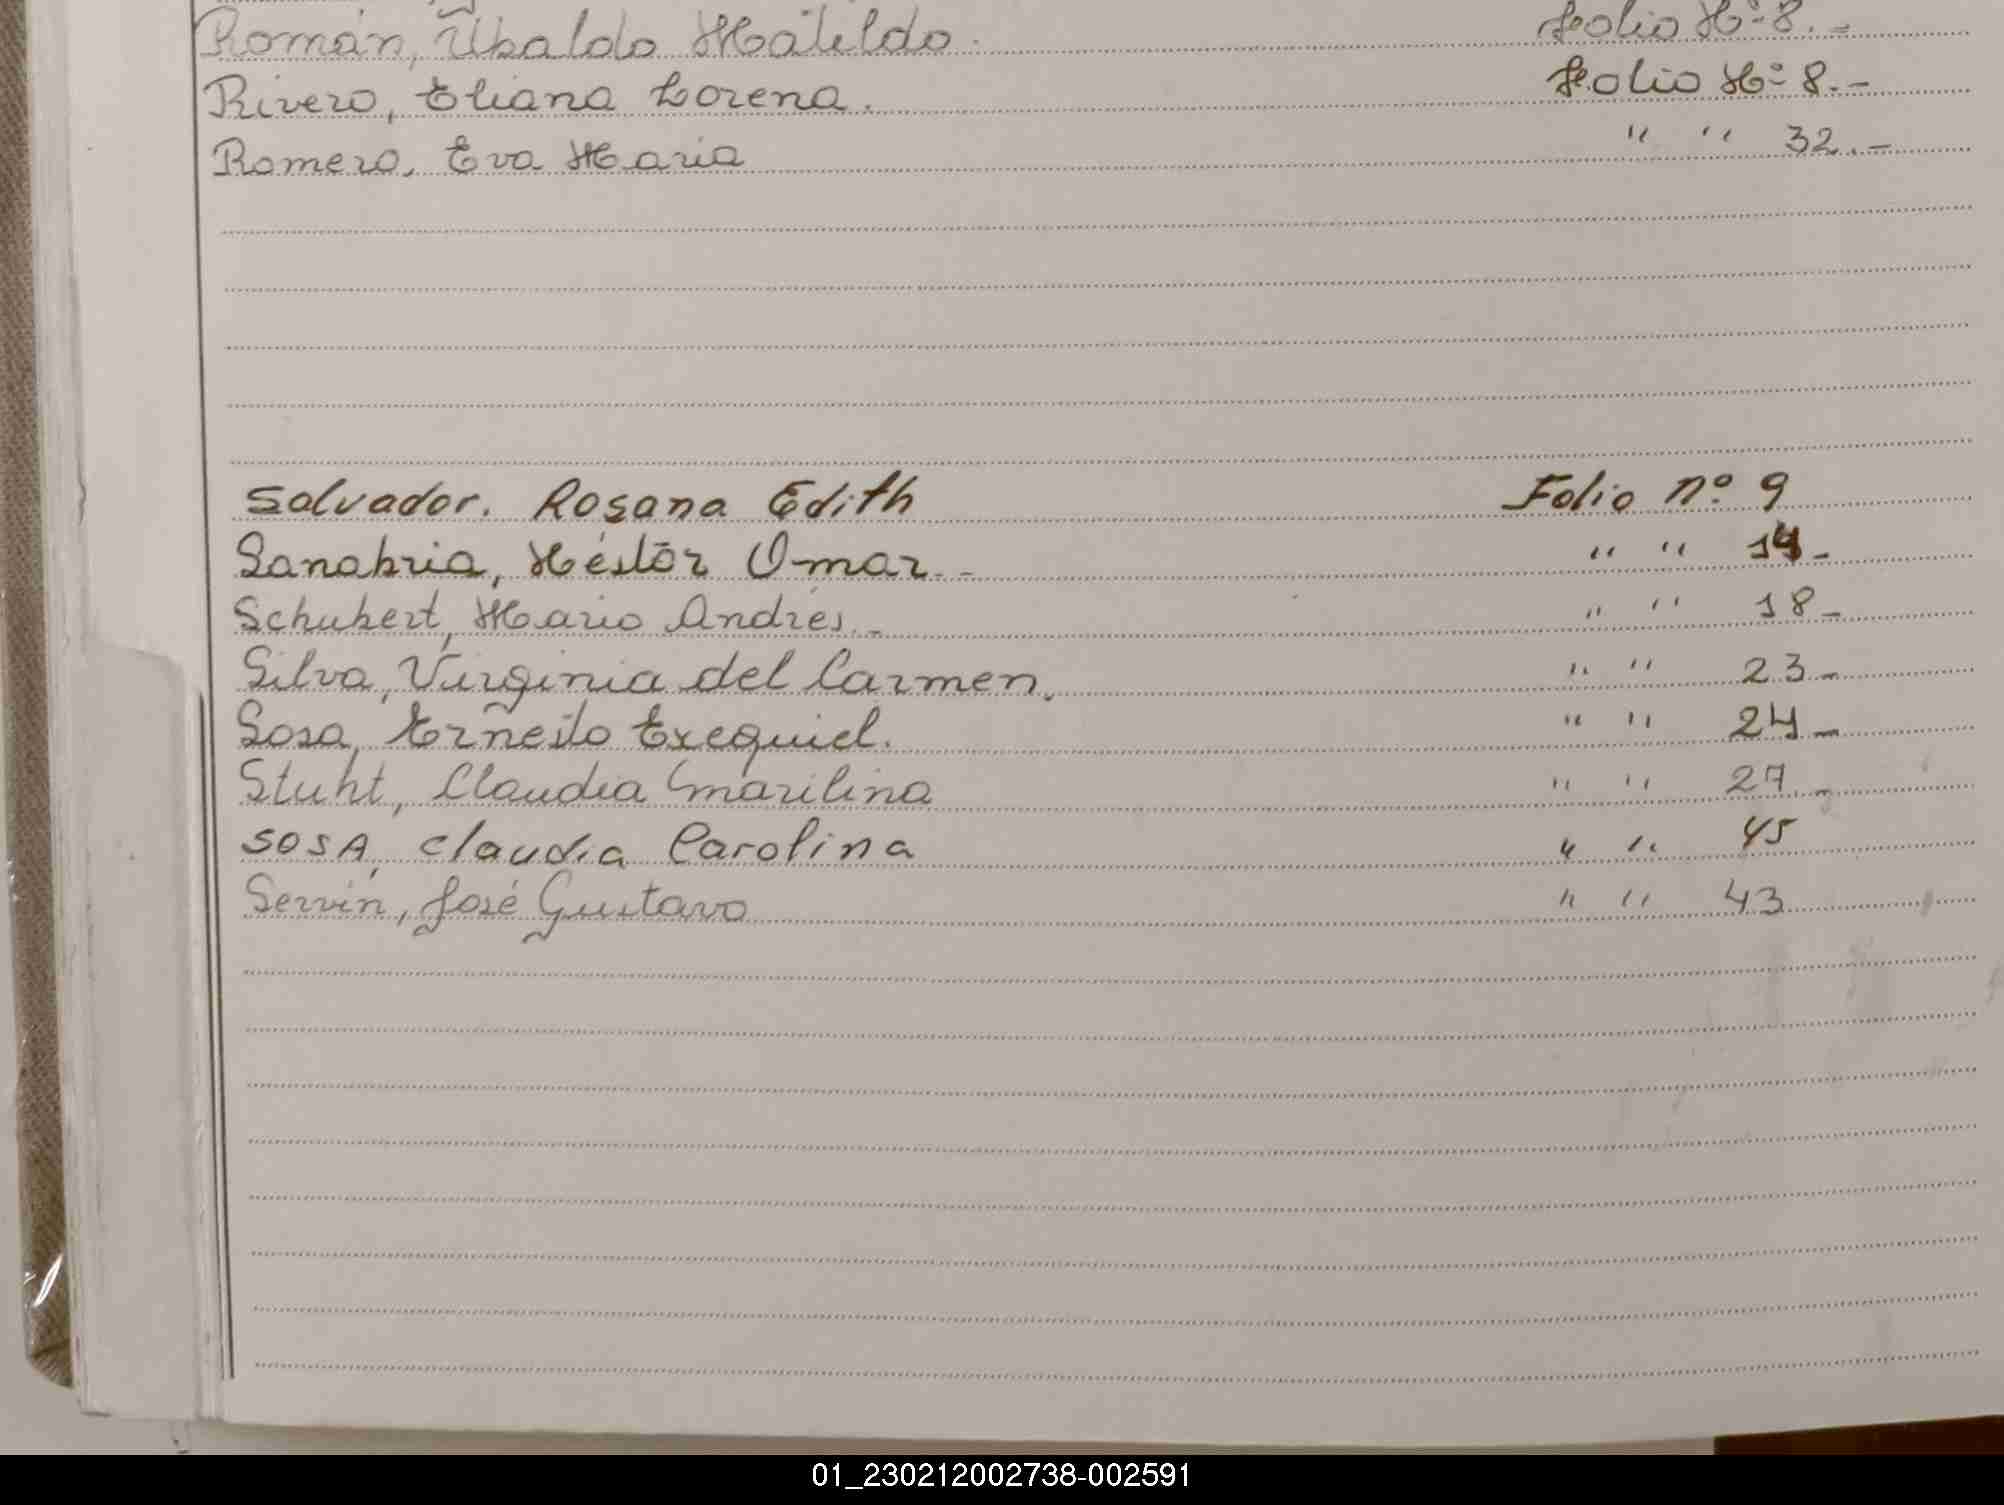 Román, Ubaldo Matildo. Folio Nº 8.-
Rivero, Eliana Lorena. Folio Nº 8.-
Romero, Eva Maria " " 32.-
Salvador. Rosana Edith Folio nº 9
Sanabria, Héstor Omar.- " " 14-
Schubert, Mario Andrés.- " " 18-
Silva, Virginia del Carmen. " " 23-
Sosa, Ernesto Exequiel. " " 24-
Stuht, Claudia Marilina " " 27-
SOSA, Claudia Carolina " " 45
Servin, José Gustavo " " 43
01_230212002738-002591